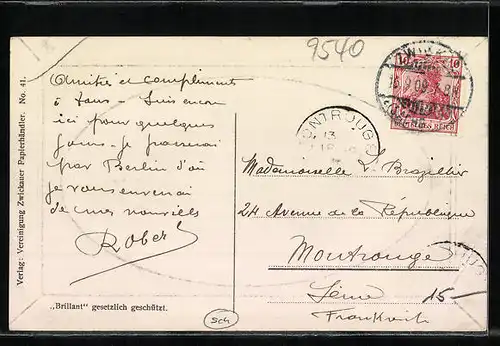 9540
Verlag: Vereinigung Zwickauer Papierhändler. No. 41.
Amitiés et compliments
à tous - Suis encore
ici pour quelques
jours - Je passerai
par Berlin d'où
je vous enverrai
de mes nouvelles
Robert
„Brillant“ gesetzlich geschützt.
Sch
ZWICK
10
MONTROUGE
13
Mademoiselle L. Brazillier
24 Avenue de la République
Montrouge
Seine
15
Frankreich